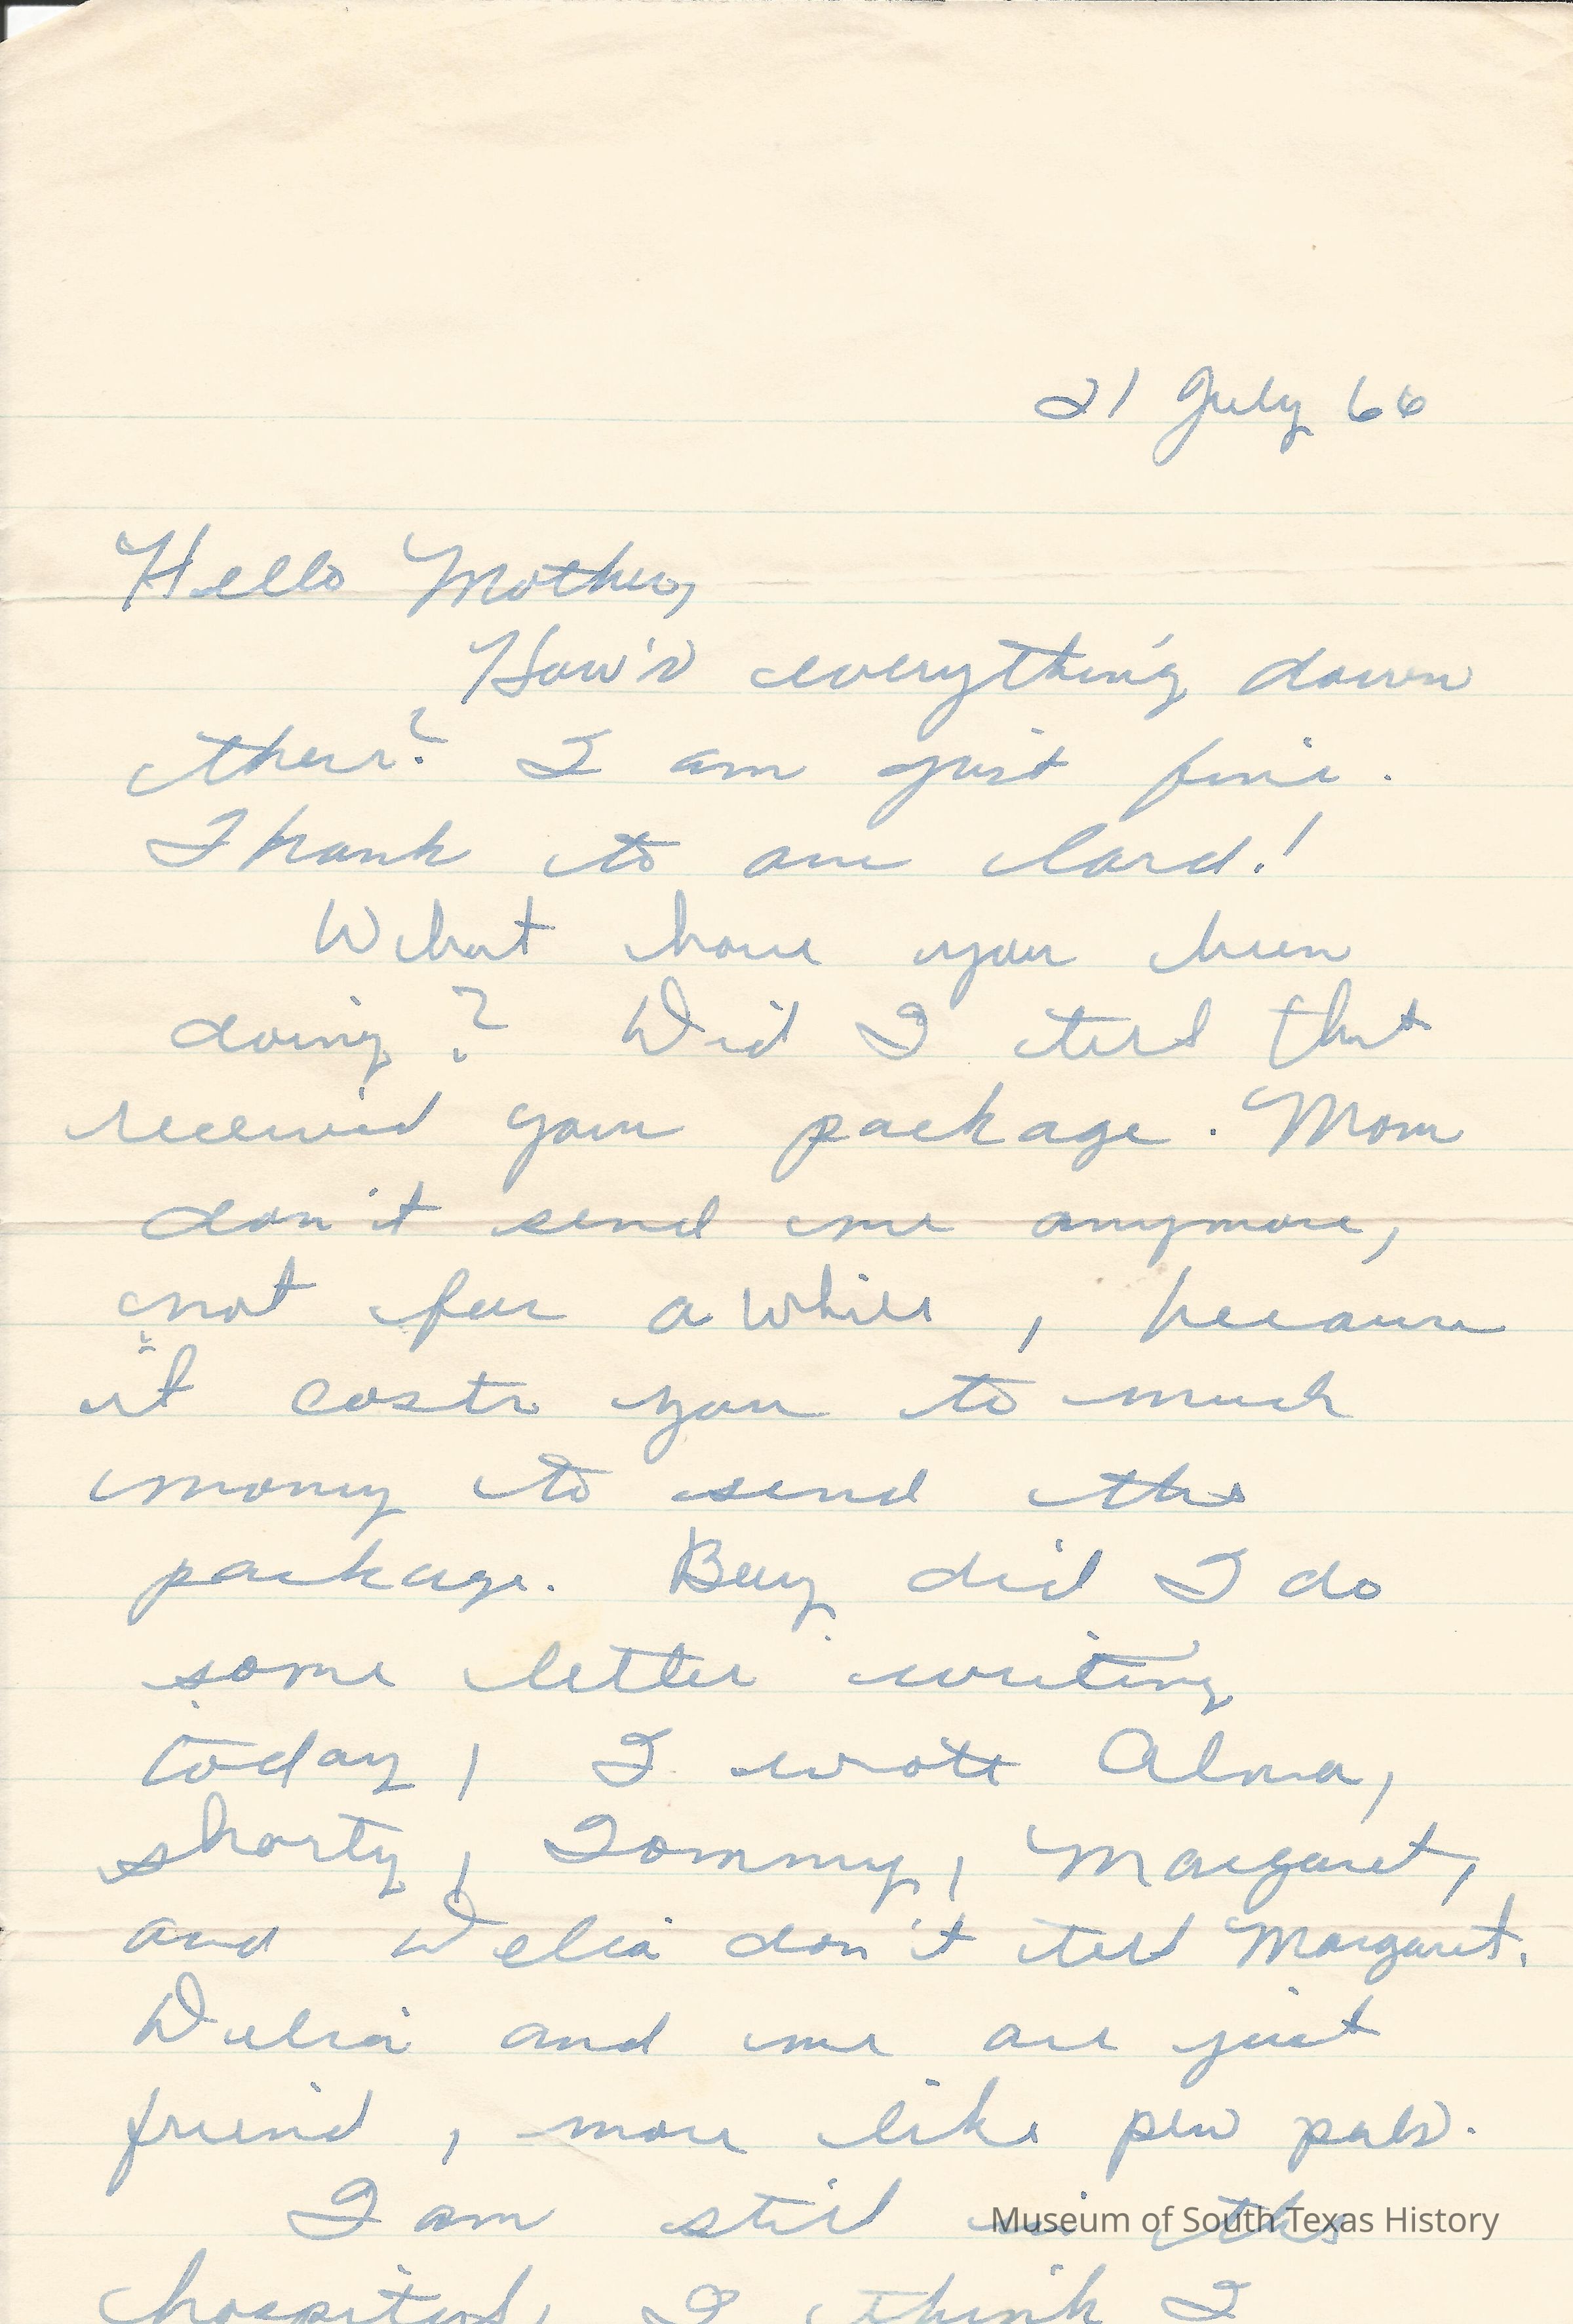 21 July 66
Hello Mother,
How's everything down
there? I am just fine.
Thank to our lord!
What have you been
doing? Did I tell that
received your package. Mom
don't send me anymore,
not for a while, because
it costs you to much
money to send the
package. Boy did I do
some letter writing
today, I wrote Alma,
shorty, Tommy, Margaret,
and Delia don't tell Margaret.
Delia and me are just
friend, more like pen pals.
I am still in the
Museum of South Texas History
hospital, I think I